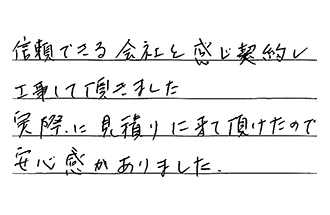 信頼できる会社と感じ契約し
工事して頂きました
実際に見積りに来て頂けたので
安心感がありました.